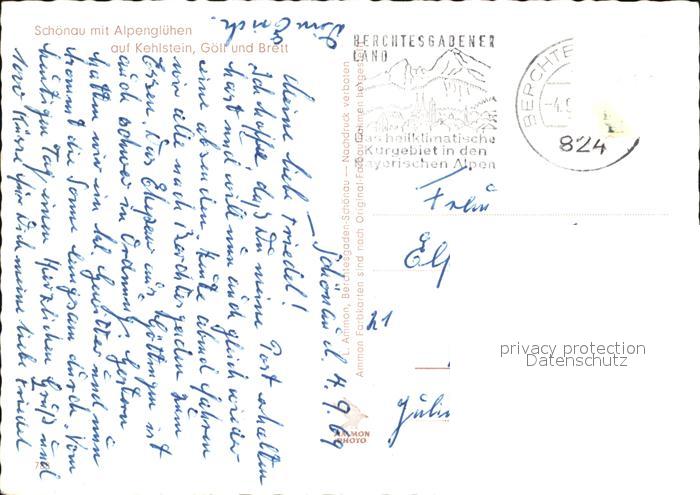 Schönau mit Alpenglühen
auf Kehlstein, Göll und Brett
BERCHTESGADENER
LAND
Das heilklimatische
Kurgebiet in den
Bayerischen Alpen
BERCHTE
-4.9
824
L. Ammon, Berchtesgaden-Schönau — Nachdruck verboten
Ammon Farbkarten sind nach Original-Farbaufnahmen hergestellt
AMMON
PHOTO
Schönau d. 4.9.69
Meine liebe Friedel!
Ich hoffe, daß Du meine Post erhalten
hast und will nun auch gleich wieder
eine absenden. Heute abend fahren
wir alle nach Berchtesgaden zum
Essen. Das Ehepaar aus Göttingen ist
auch schwer in Ordnung. Gestern
hatten wir ein Gewitter und nun
kommt die Sonne langsam durch. Vom
heutigen Tag einen herzlichen Gruß und
Küsse für Dich meine liebe Friedel
Dein Erich.
Frau
El
21
Jül
privacy protection
Datenschutz